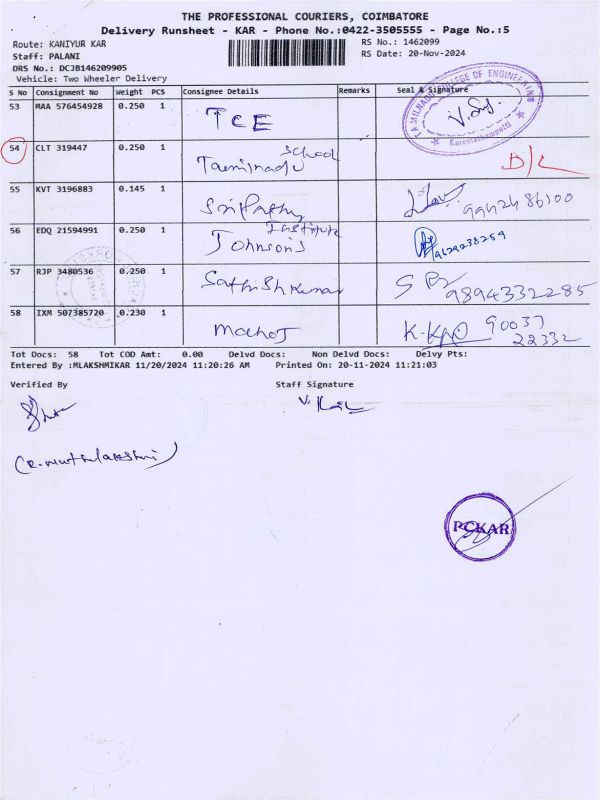 THE PROFESSIONAL COURIERS, COIMBATORE
Delivery Runsheet - KAR - Phone No.:0422-3505555 - Page No.:5
Route: KANIYUR KAR
RS No.: 1462099
Staff: PALANI
RS Date: 20-Nov-2024
DRS No.: DCJB146209905
Vehicle: Two Wheeler Delivery
S No Consignment No Weight PCS Consignee Details Remarks Seal & Signature
53 MAA 576454928 0.250 1 TCE
TAMILNADU COLLEGE OF ENGINEERING
Karumathampatti
54 CLT 319447 0.250 1 Tamilnadu School D/C
55 KVT 3196883 0.145 1 Sri Pathy 9942486100
56 EDQ 21594991 0.250 1 Johnson's Institute 9629238259
57 RJP 3480536 0.250 1 Sathish Kumar 9894332285
58 IXM 507385720 0.230 1 Manoj 90037 22332
Tot Docs: 58 Tot COD Amt: 0.00 Delvd Docs: Non Delvd Docs: Delvy Pts:
Entered By :MLAKSHMIKAR 11/20/2024 11:20:26 AM Printed On: 20-11-2024 11:21:03
Verified By Staff Signature
(R. Muthulakshmi)
PCKAR